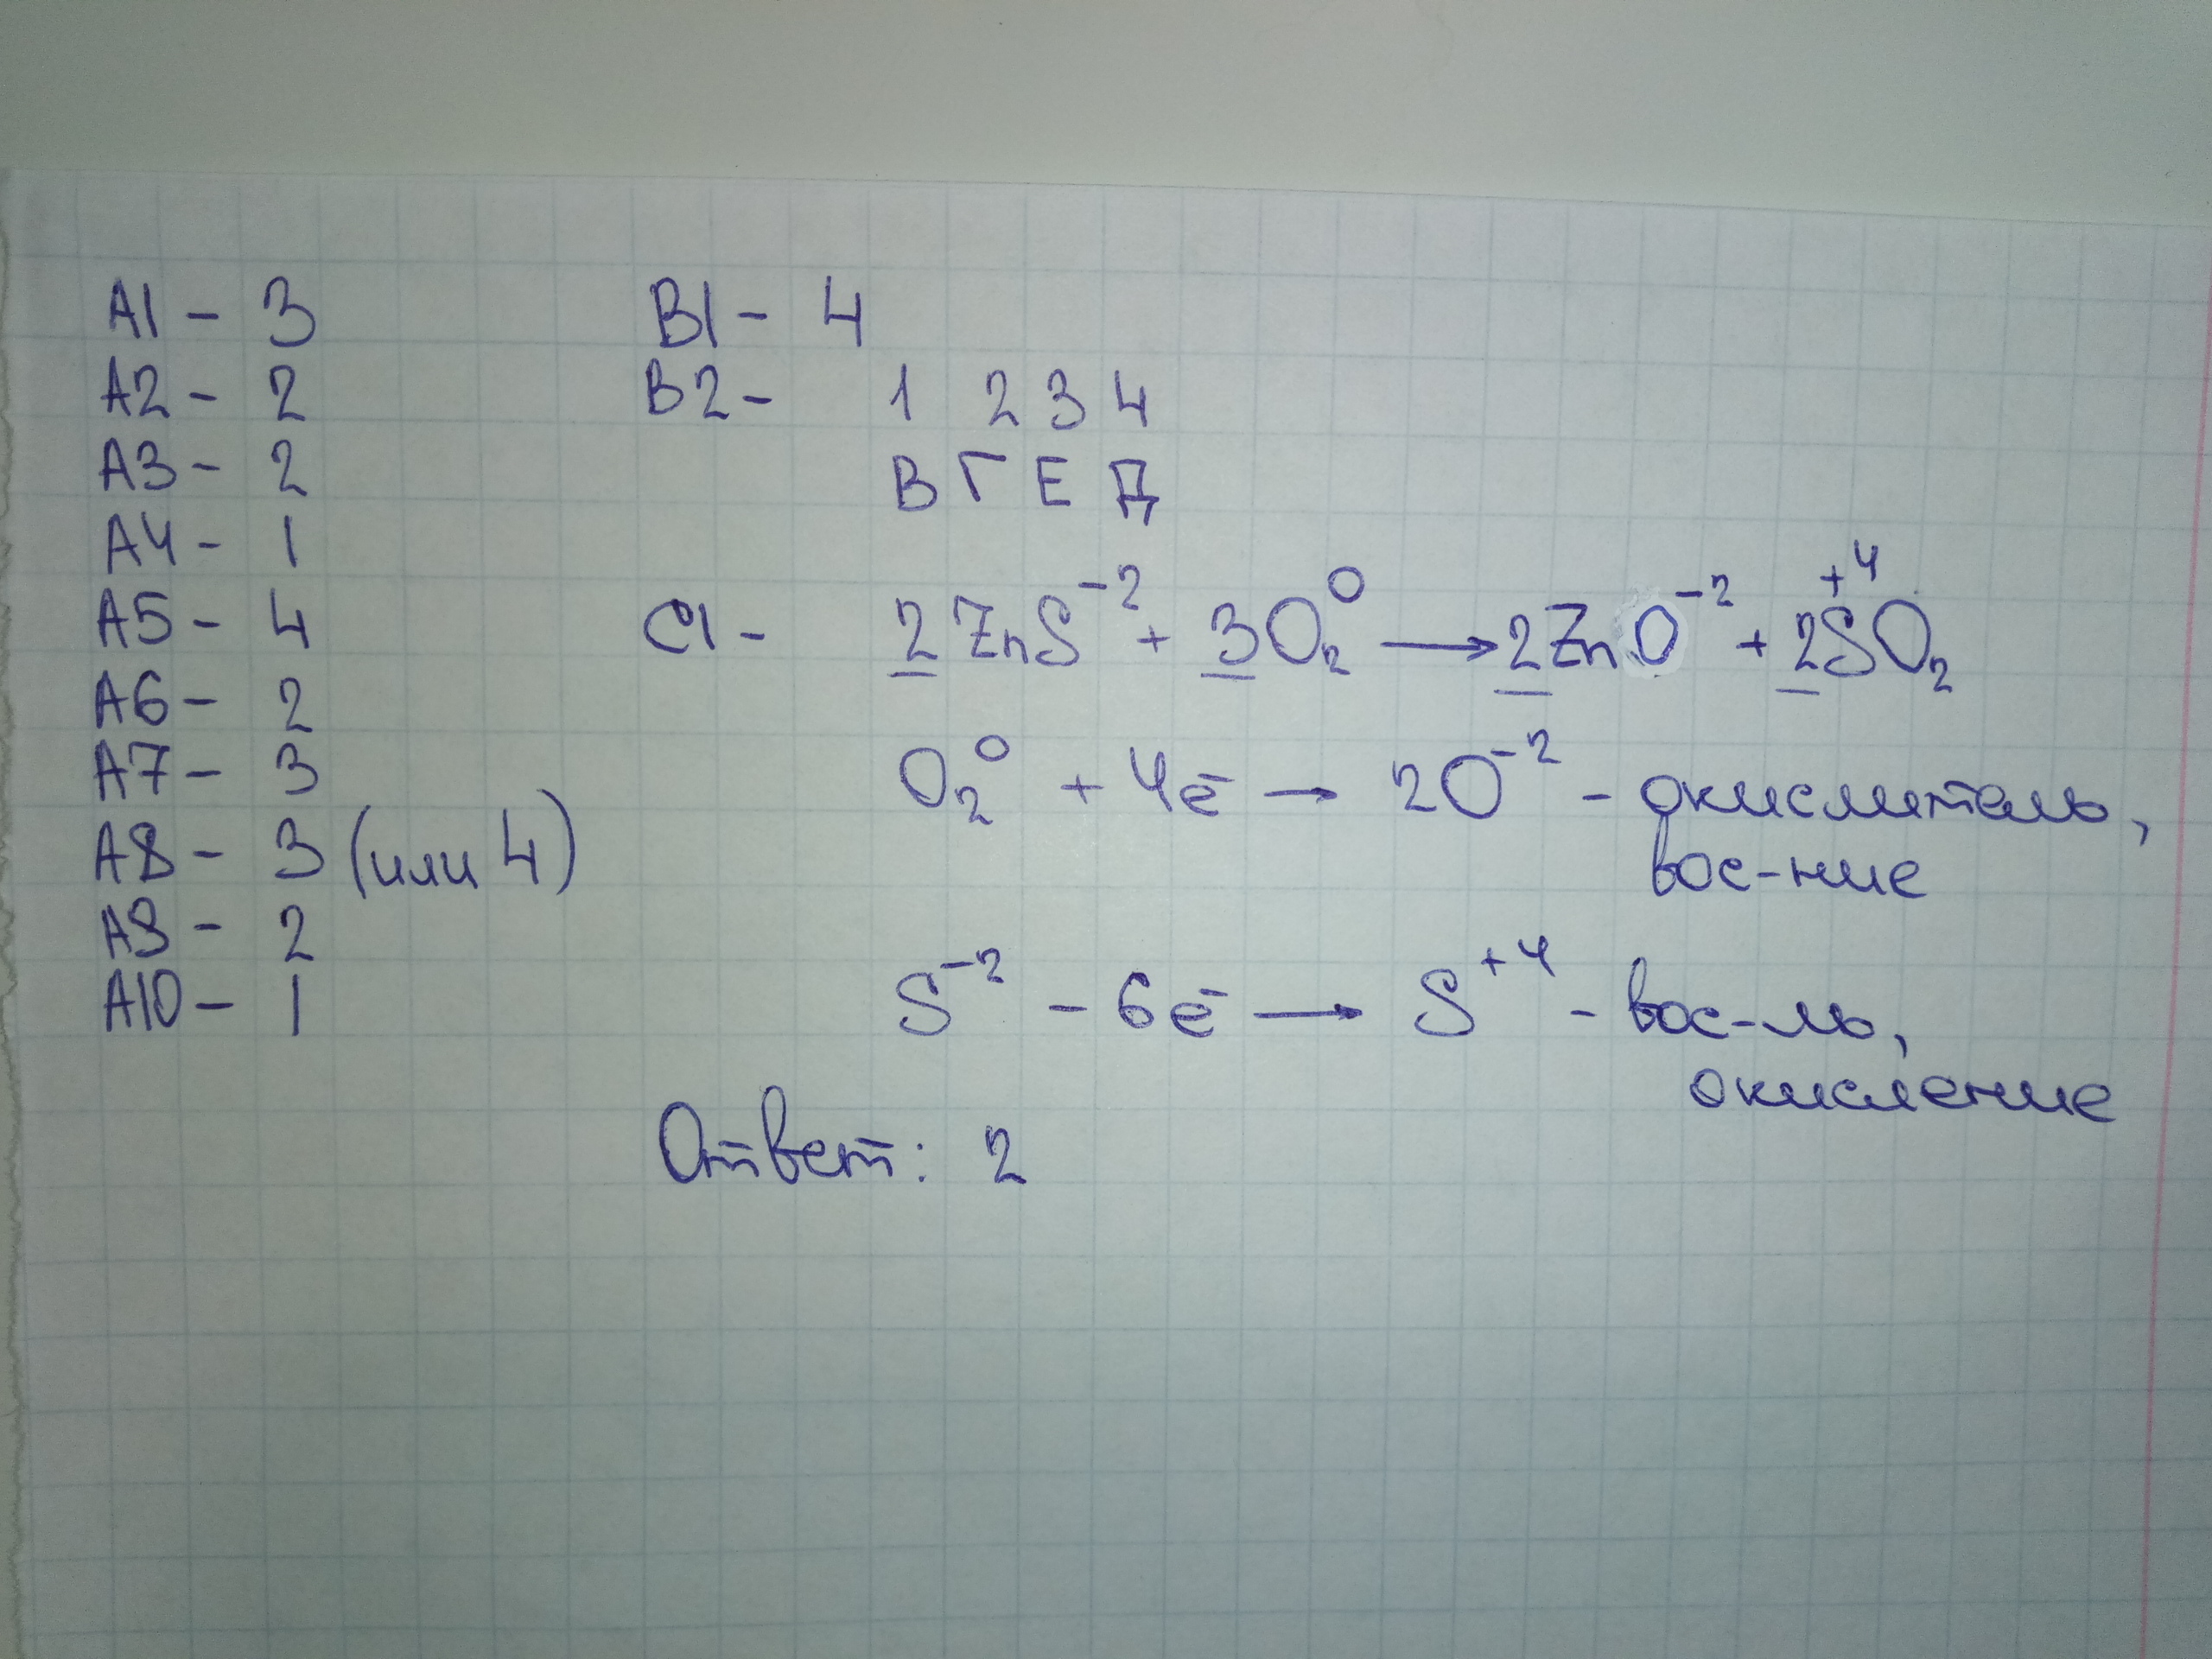 А1 - 3
А2 - 2
А3 - 2
А4 - 1
А5 - 4
А6 - 2
А7 - 3
А8 - 3 (или 4)
А9 - 2
А10 - 1
В1 - 4
В2 - 1 2 3 4
В Г Е Д
С1 - 2ZnS⁻² + 3O₂⁰ → 2ZnO⁻² + 2S⁺⁴O₂
O₂⁰ + 4ē → 2O⁻² - окислитель,
вос-ние
S⁻² - 6ē → S⁺⁴ - вос-ль,
окисление
Ответ: 2